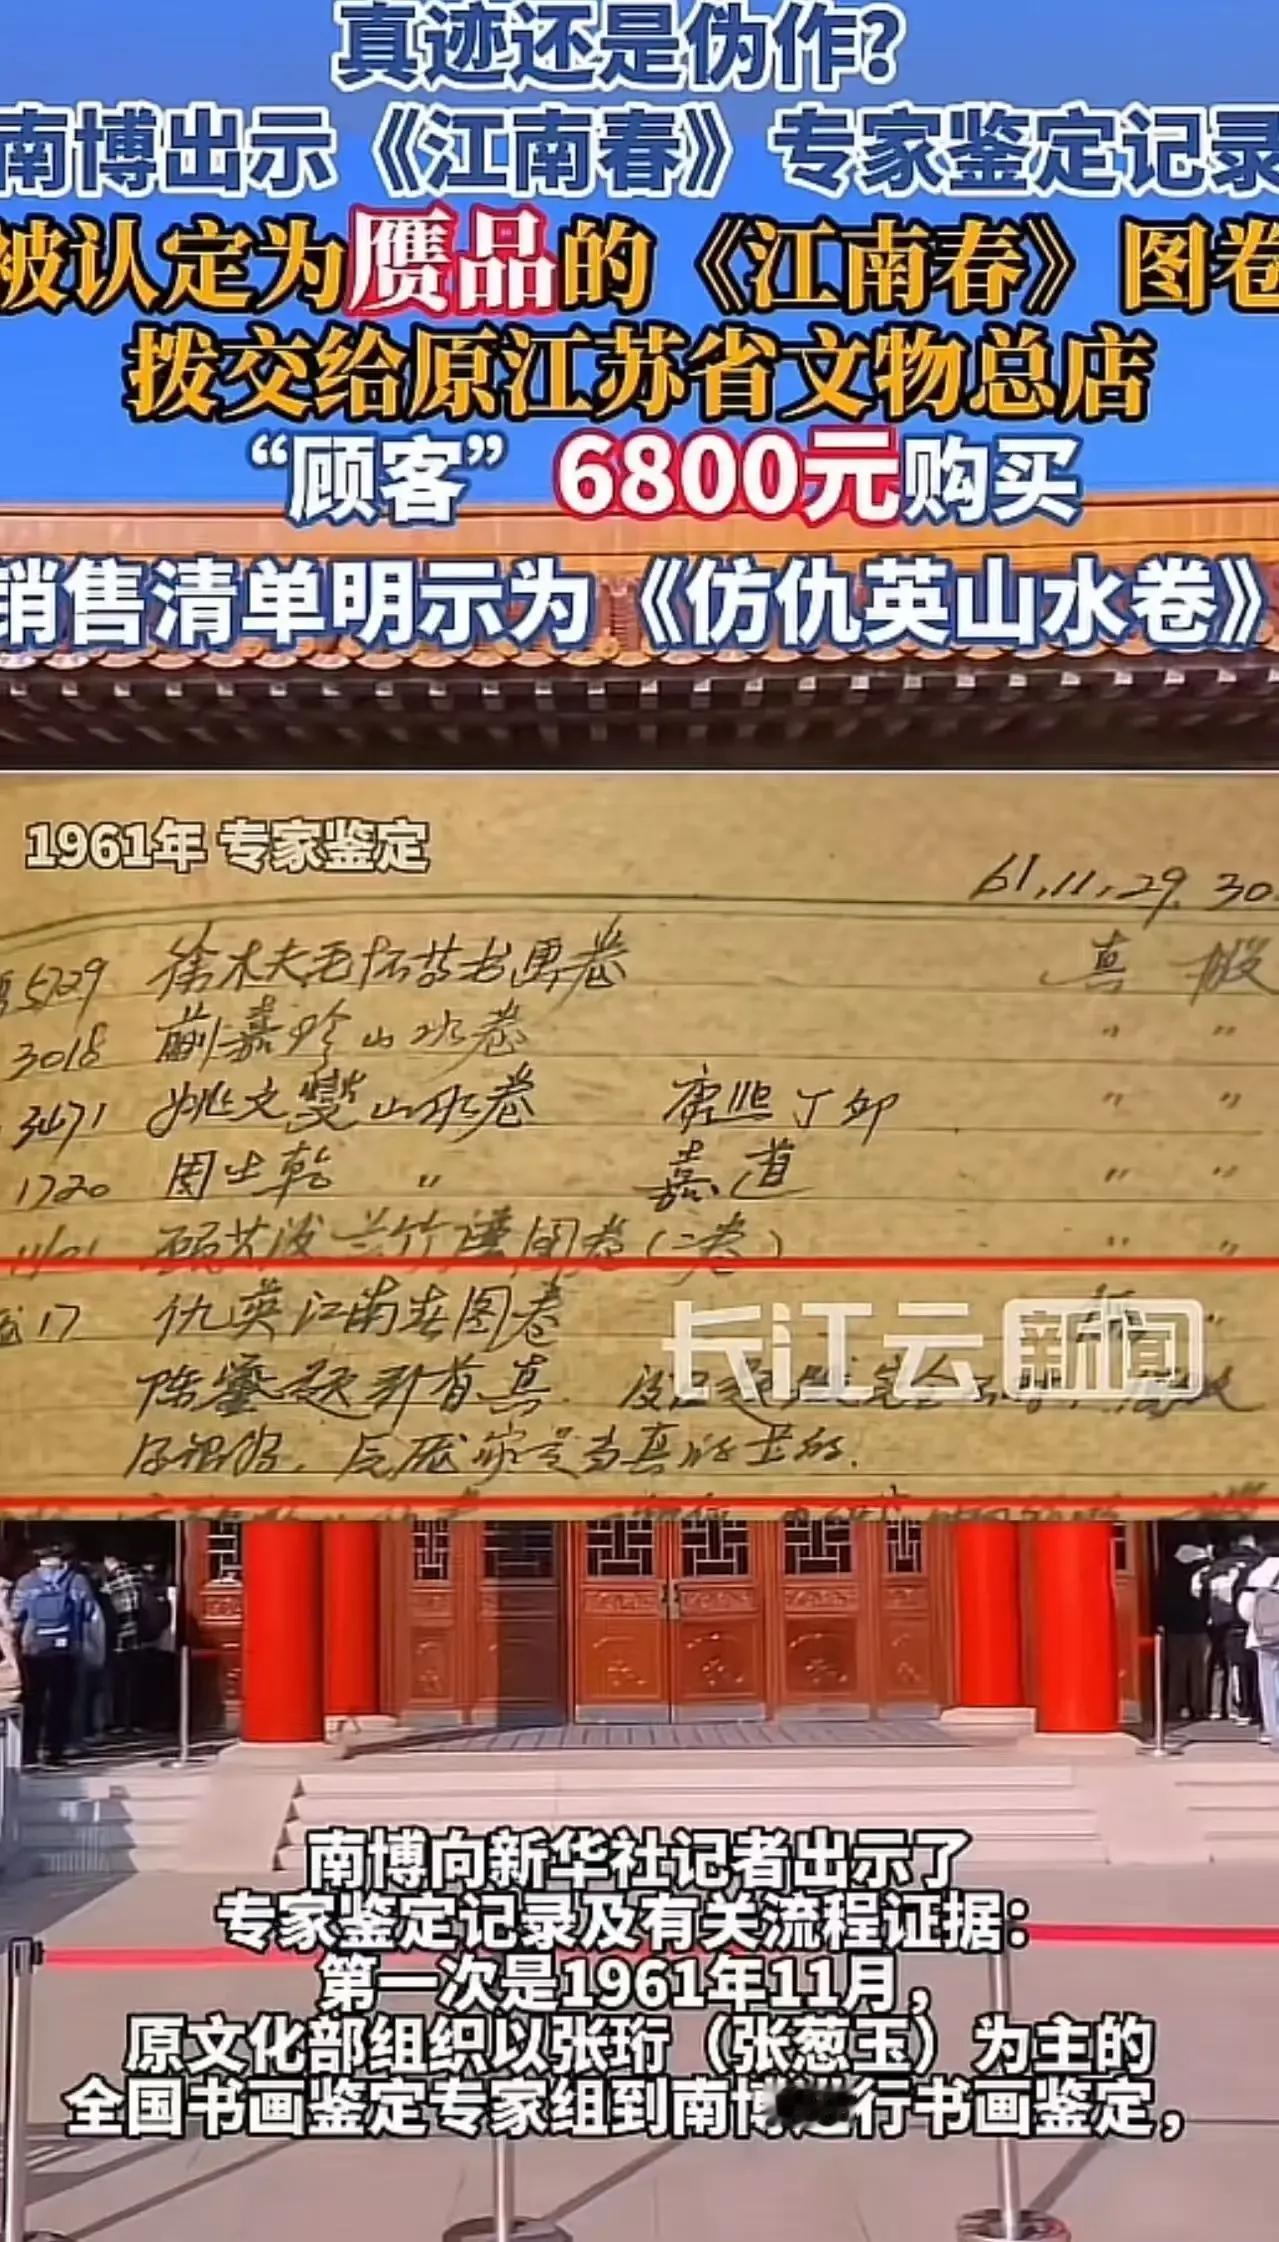 真迹还是伪作？
南博出示《江南春》专家鉴定记录
被认定为赝品的《江南春》图卷
拨交给原江苏省文物总店
“顾客”6800元购买
销售清单明示为《仿仇英山水卷》
1961年 专家鉴定
61.11.29.30.
5729 徐木夫毛怀苏书画卷 真
3018 蒯嘉珍山水卷 〃 〃
3471 姚文燮山水卷 康熙丁卯 〃 〃
1720 周生乾 〃 嘉道 〃 〃
兰竹 图卷（二卷） 〃 〃
17 仇英江南春图卷 〃
陈鎏题引首真
长江云新闻
南博向新华社记者出示了
专家鉴定记录及有关流程证据：
第一次是1961年11月，
原文化部组织以张珩（张葱玉）为主的
全国书画鉴定专家组到南博 行书画鉴定，